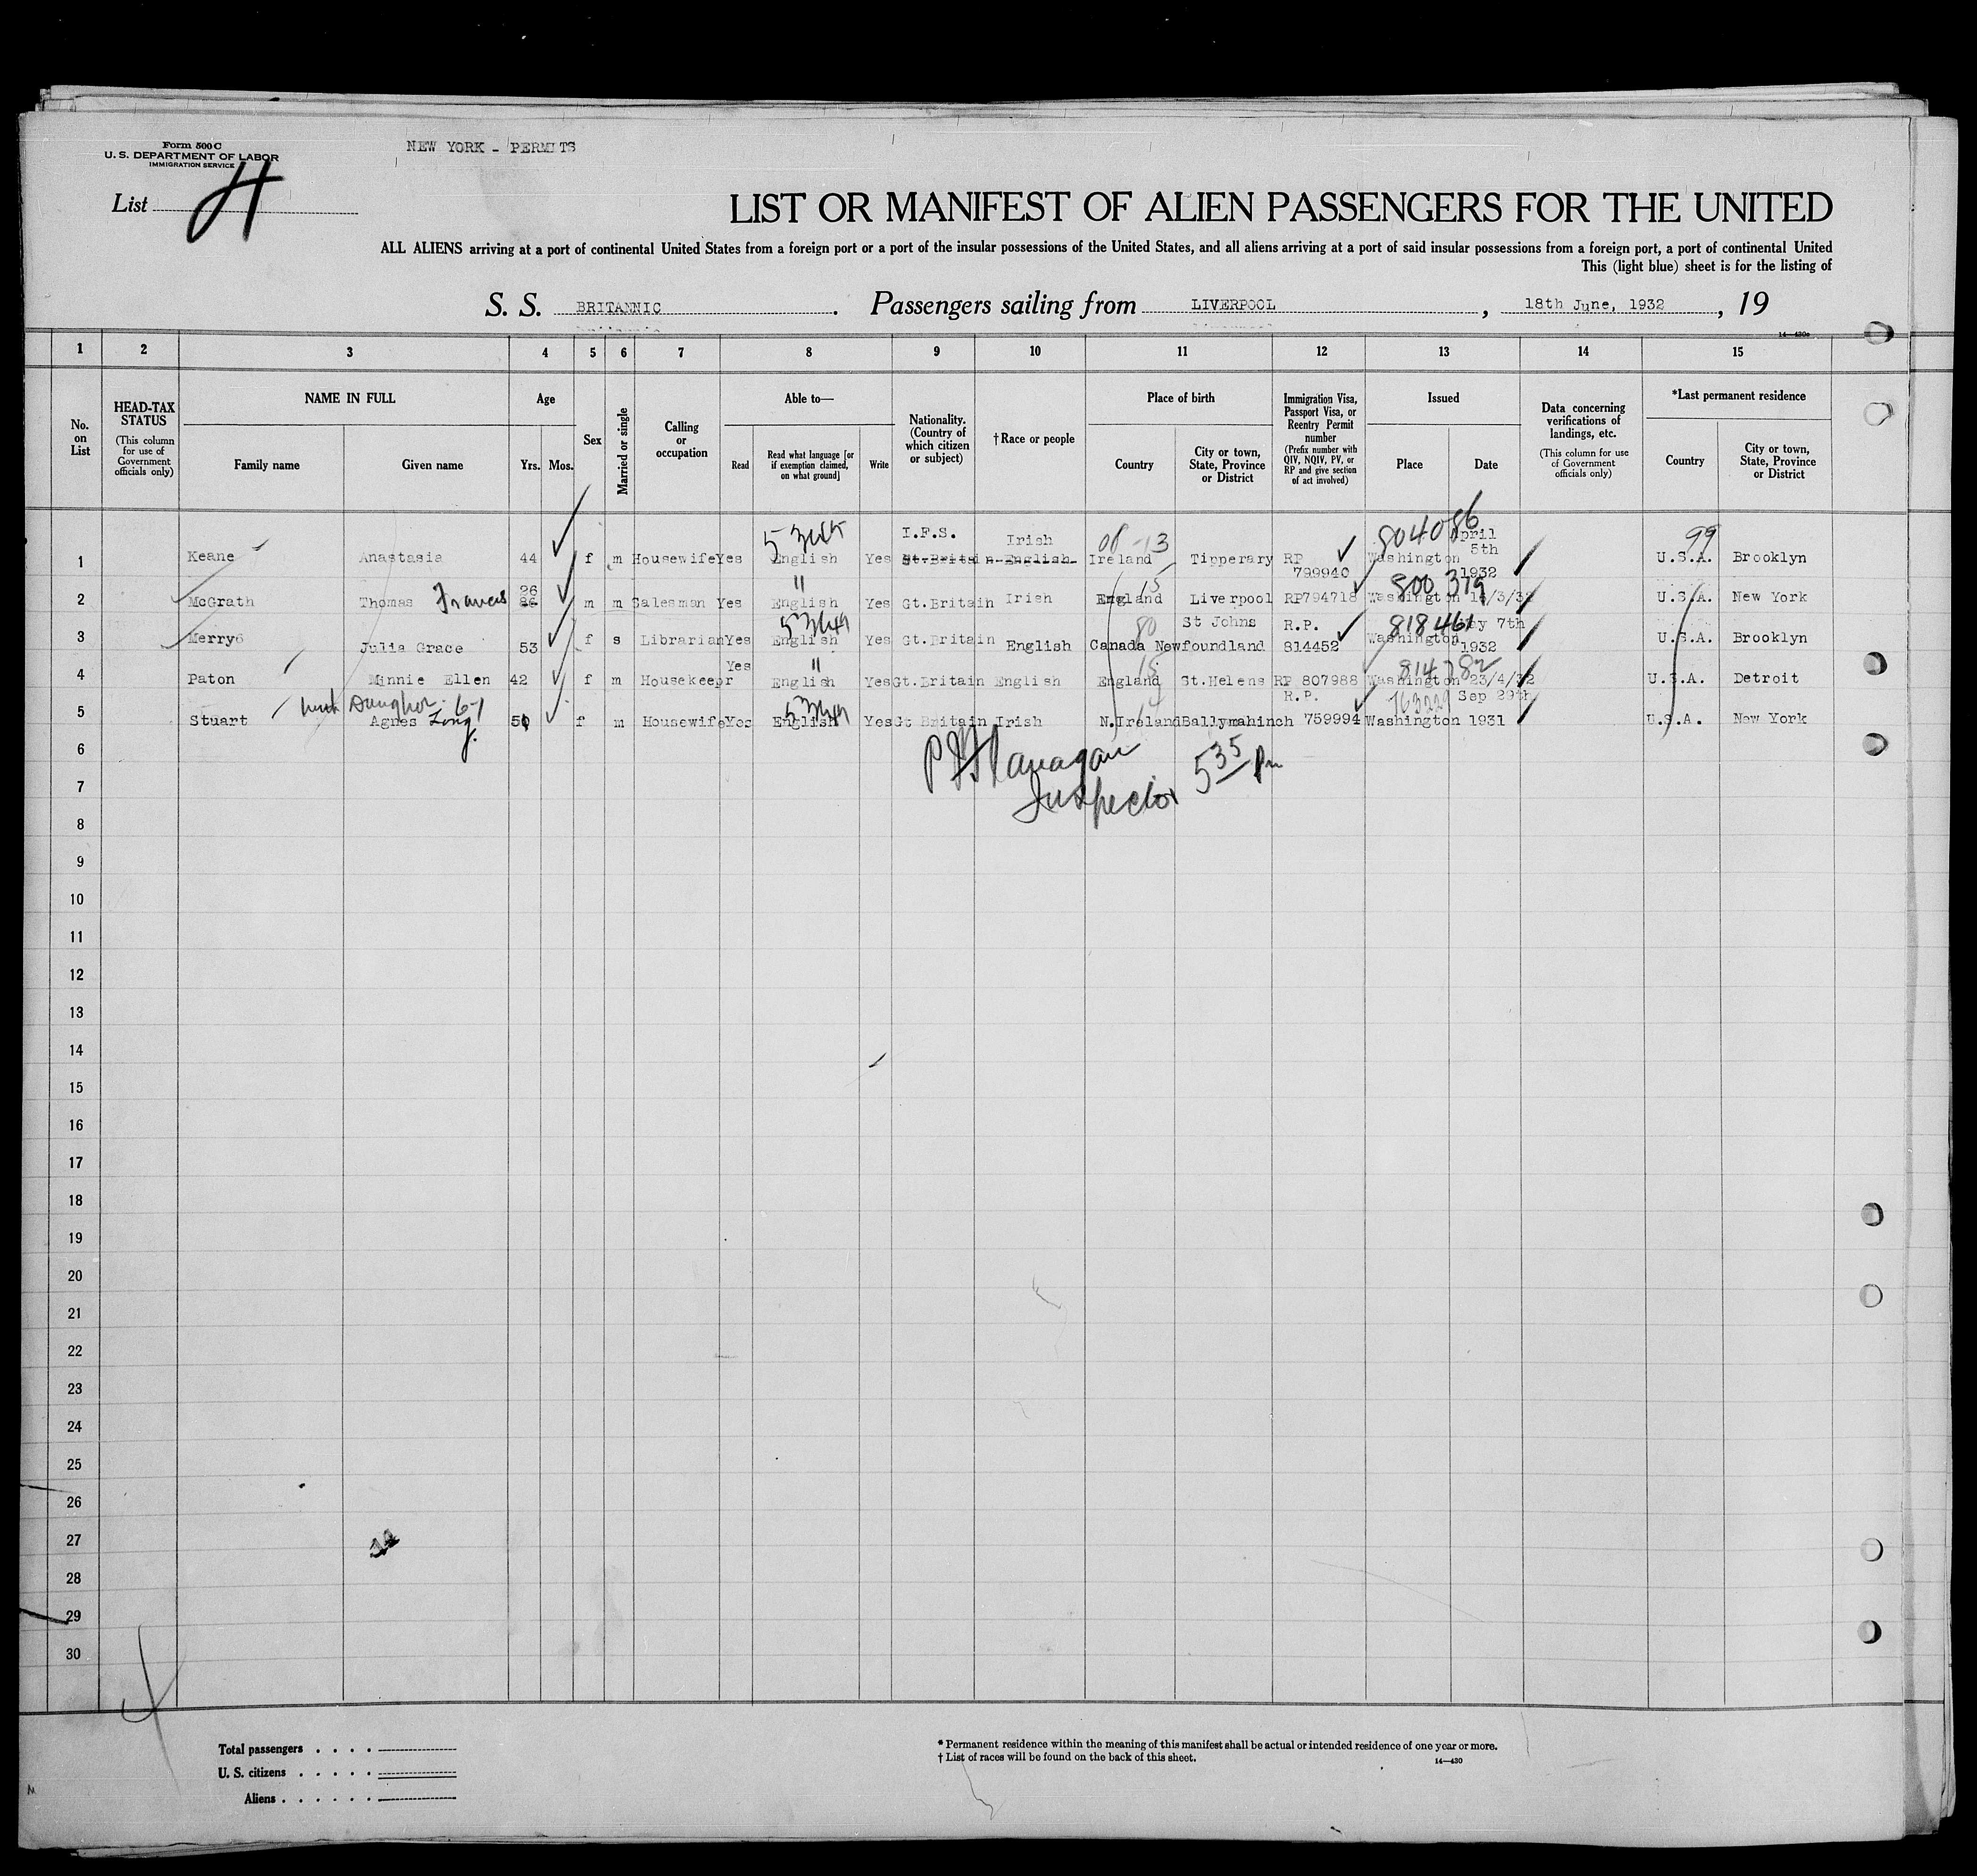 Form 500 C
U. S. DEPARTMENT OF LABOR
IMMIGRATION SERVICE
NEW YORK - PERMITS
List H
LIST OR MANIFEST OF ALIEN PASSENGERS FOR THE UNITED
ALL ALIENS arriving at a port of continental United States from a foreign port or a port of the insular possessions of the United States, and all aliens arriving at a port of said insular possessions from a foreign port, a port of continental United
This (light blue) sheet is for the listing of
S. S. BRITANNIC. Passengers sailing from LIVERPOOL, 18th June, 1932, 19
14—430c
1 2 3 4 5 6 7 8 9 10 11 12 13 14 15
No. on List
HEAD-TAX STATUS
(This column for use of Government officials only)
NAME IN FULL
Family name
Given name
Age
Yrs. Mos.
Sex
Married or single
Calling or occupation
Able to—
Read
Read what language [or if exemption claimed, on what ground]
Write
Nationality. (Country of which citizen or subject)
†Race or people
Place of birth
Country
City or town, State, Province or District
Immigration Visa, Passport Visa, or Reentry Permit number
(Prefix number with QIV, NQIV, PV, or RP and give section of act involved)
Issued
Place
Date
Data concerning verifications of landings, etc.
(This column for use of Government officials only)
*Last permanent residence
Country
City or town, State, Province or District
1 Keane Anastasia 44 f m Housewife Yes English Yes I.F.S. Gt.Britain Irish English Ireland Tipperary RP 799940 804086 Washington April 5th 1932 99 U.S.A. Brooklyn
2 McGrath Thomas Francis 26 m m Salesman Yes " English Yes Gt.Britain Irish England 15 Liverpool RP794718 800379 Washington U.S.A. New York
3 Merry Julia Grace 53 f s Librarian Yes English Yes Gt.Britain English 80 Canada St Johns Newfoundland R.P. 814452 818461 Washington May 7th 1932 U.S.A. Brooklyn
4 Paton Minnie Ellen 42 f m Housekeepr Yes " English Yes Gt.Britain English 15 England St.Helens RP 807988 Washington 23/4/32 U.S.A. Detroit
5 Stuart Agnes 50 f m Housewife Yes English Yes Gt Britain Irish 14 N.Ireland Ballymahinch R.P. 759994 763229 Washington Sep 29th 1931 U.S.A. New York
6 Flanagan
7 Inspector 5 35 Pm
8
9
10
11
12
13
14
15
16
17
18
19
20
21
22
23
24
25
26
27
28
29
30
Total passengers
U. S. citizens
Aliens
* Permanent residence within the meaning of this manifest shall be actual or intended residence of one year or more.
† List of races will be found on the back of this sheet.
14—430